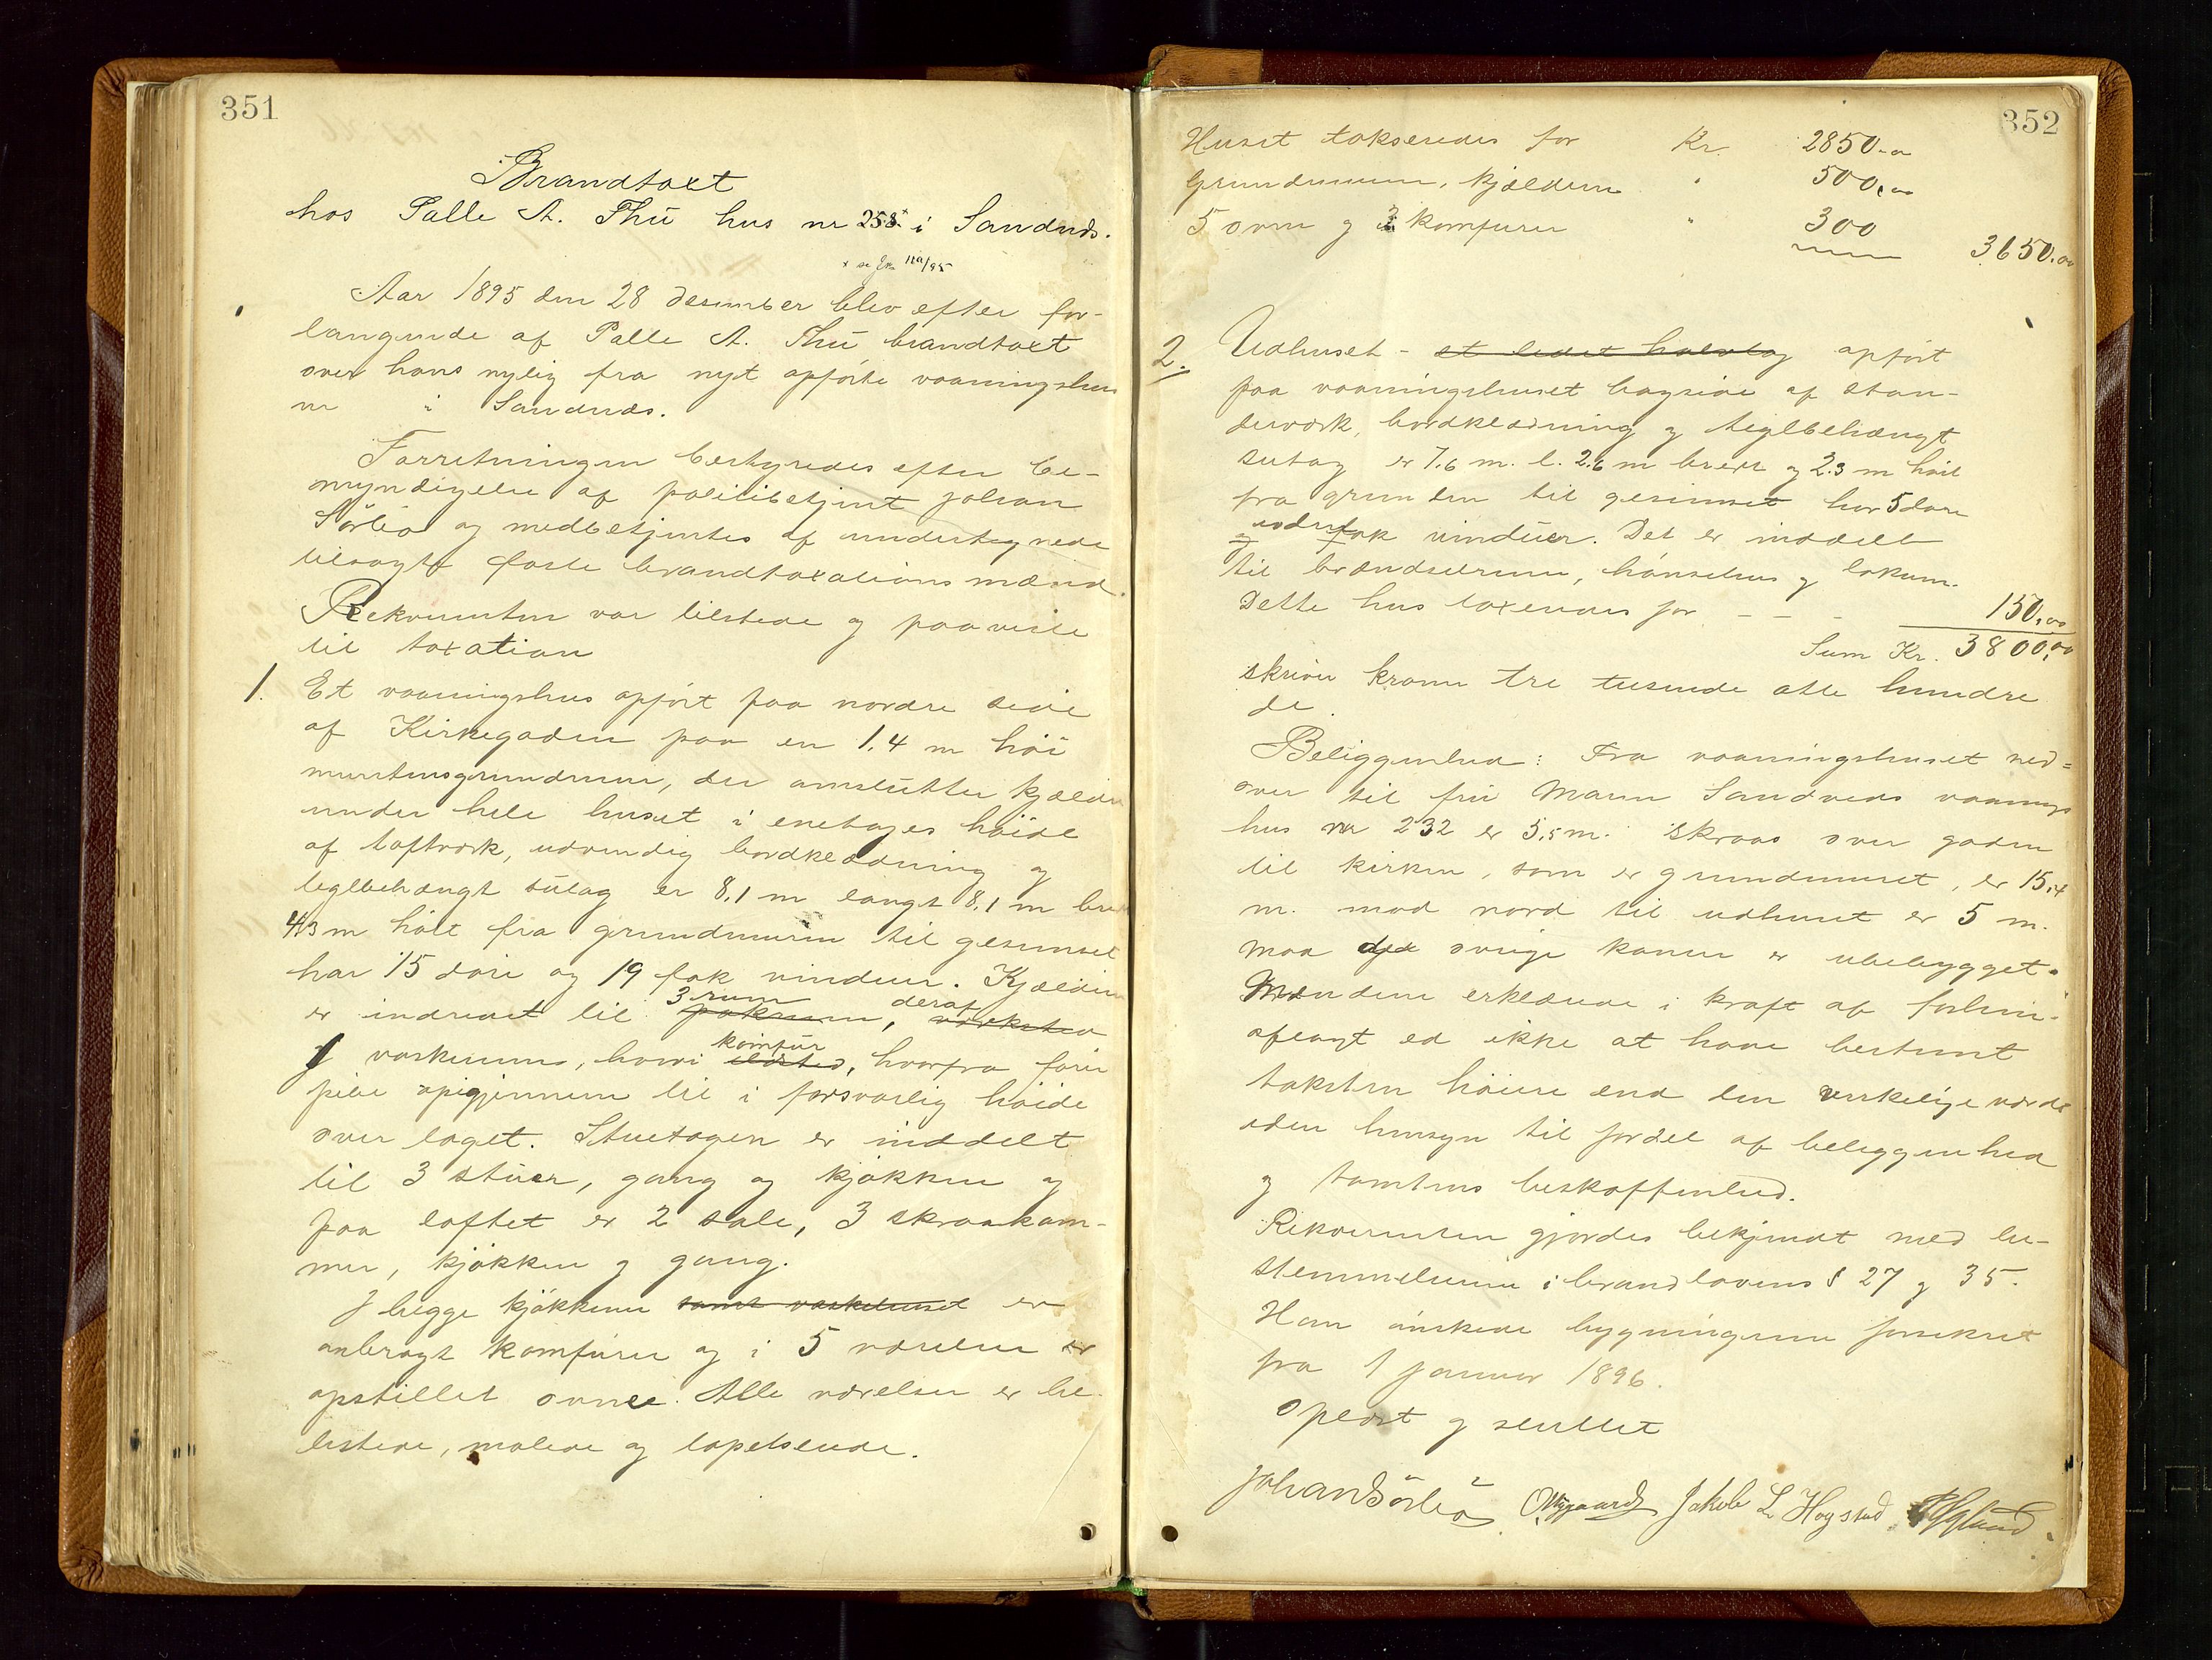 351
Brandtaxt
hos Palle A. Thu hus nr 258 x i Sandnes.
x se Jr. 120/95
Aar 1895 den 28 desember blev efter for-
langende af Palle A. Thu brandtaxt
over hans nylig fra nyt opførte vaaningshus
nr i Sandnes.
Forretningen bestyredes efter be-
myndigelse af politibetjent Johan
Sørbø og medbetjentes af undertegnede
tilsagte faste brandtaxationsmænd.
Rekvirenten var tilstede og paaviste
til taxation
1. Et vaaningshus opført paa nordre side
af Kirkegaden paa en 1.4 m høi
murstensgrundmur, der omslutter kjælder
under hele huset i enetages høide
af toftverk, udvendig bordklædning og
teglbehængt sutag er 8,1 m langt 8,1 m bredt
4.3 m høit fra grundmuren til gesimset
har 15 døre og 19 fak vinduer. Kjælderen
3 rum deraf
er indredet til pakrum, verksted
1 vaskerum, hvori ildsted, hvorfra fører
komfur
pibe opigjennem til i forsvarlig høide
over taget. Stuetagen er inddelt
til 3 stuer, gang og kjøkken og
paa loftet er 2 sale, 3 skraakam-
mer, kjøkken og gang.
I begge kjøkkener samt vaskehuset er
anbragt komfurer og i 5 værelser er
opstillet ovne. Alle værelser er be-
listede, malede og tapetserede.
352
Huset takseredes for Kr. 2850.00
Grundmuren, kjælderen " 500,00
5 ovne og 3 komfurer " 300
3650.00
2. Udhuset - et ledet halvtag opført
paa vaaningshuset bagside af stan-
derverk, bordklædning og teglbehængt
sutag er 7.6 m. l. 2.6 m bredt og 2.3 m høit
fra grunden til gesimset har 5 døre
og fak vinduer. Det er inddelt
til brændselrum, hønsehus og lokum.
Dette hus taxeredes for - - - 150,00
Sum Kr. 3800,00
skriver kroner tre tusende otte hundre
de.
Beliggenhed: Fra vaaningshuset ned=
over til fru Maren Sandveds vaanings
hus nr 232 er 5,5 m. Skraas over gaden
til kirken, som er grundmuret, er 15,4
m. mod nord til udhuset er 5 m.
Maa de øvrige kanter er ubebygget.
Mændene erklærede i kraft af forhen-
aflagt ed ikke at have bestemt
taksten høiere end den virkelige værdi
uden hensyn til fordel af beliggenhed
og tomtens beskaffenhed.
Rekvirenten gjordes bekjendt med be-
stemmelserne i brandlovens § 27 og 35.
Han ønskede bygningerne forsikret
fra 1 januar 1896.
Oplæst og sluttet
Johan Sørbø Jakob L. Hogstad